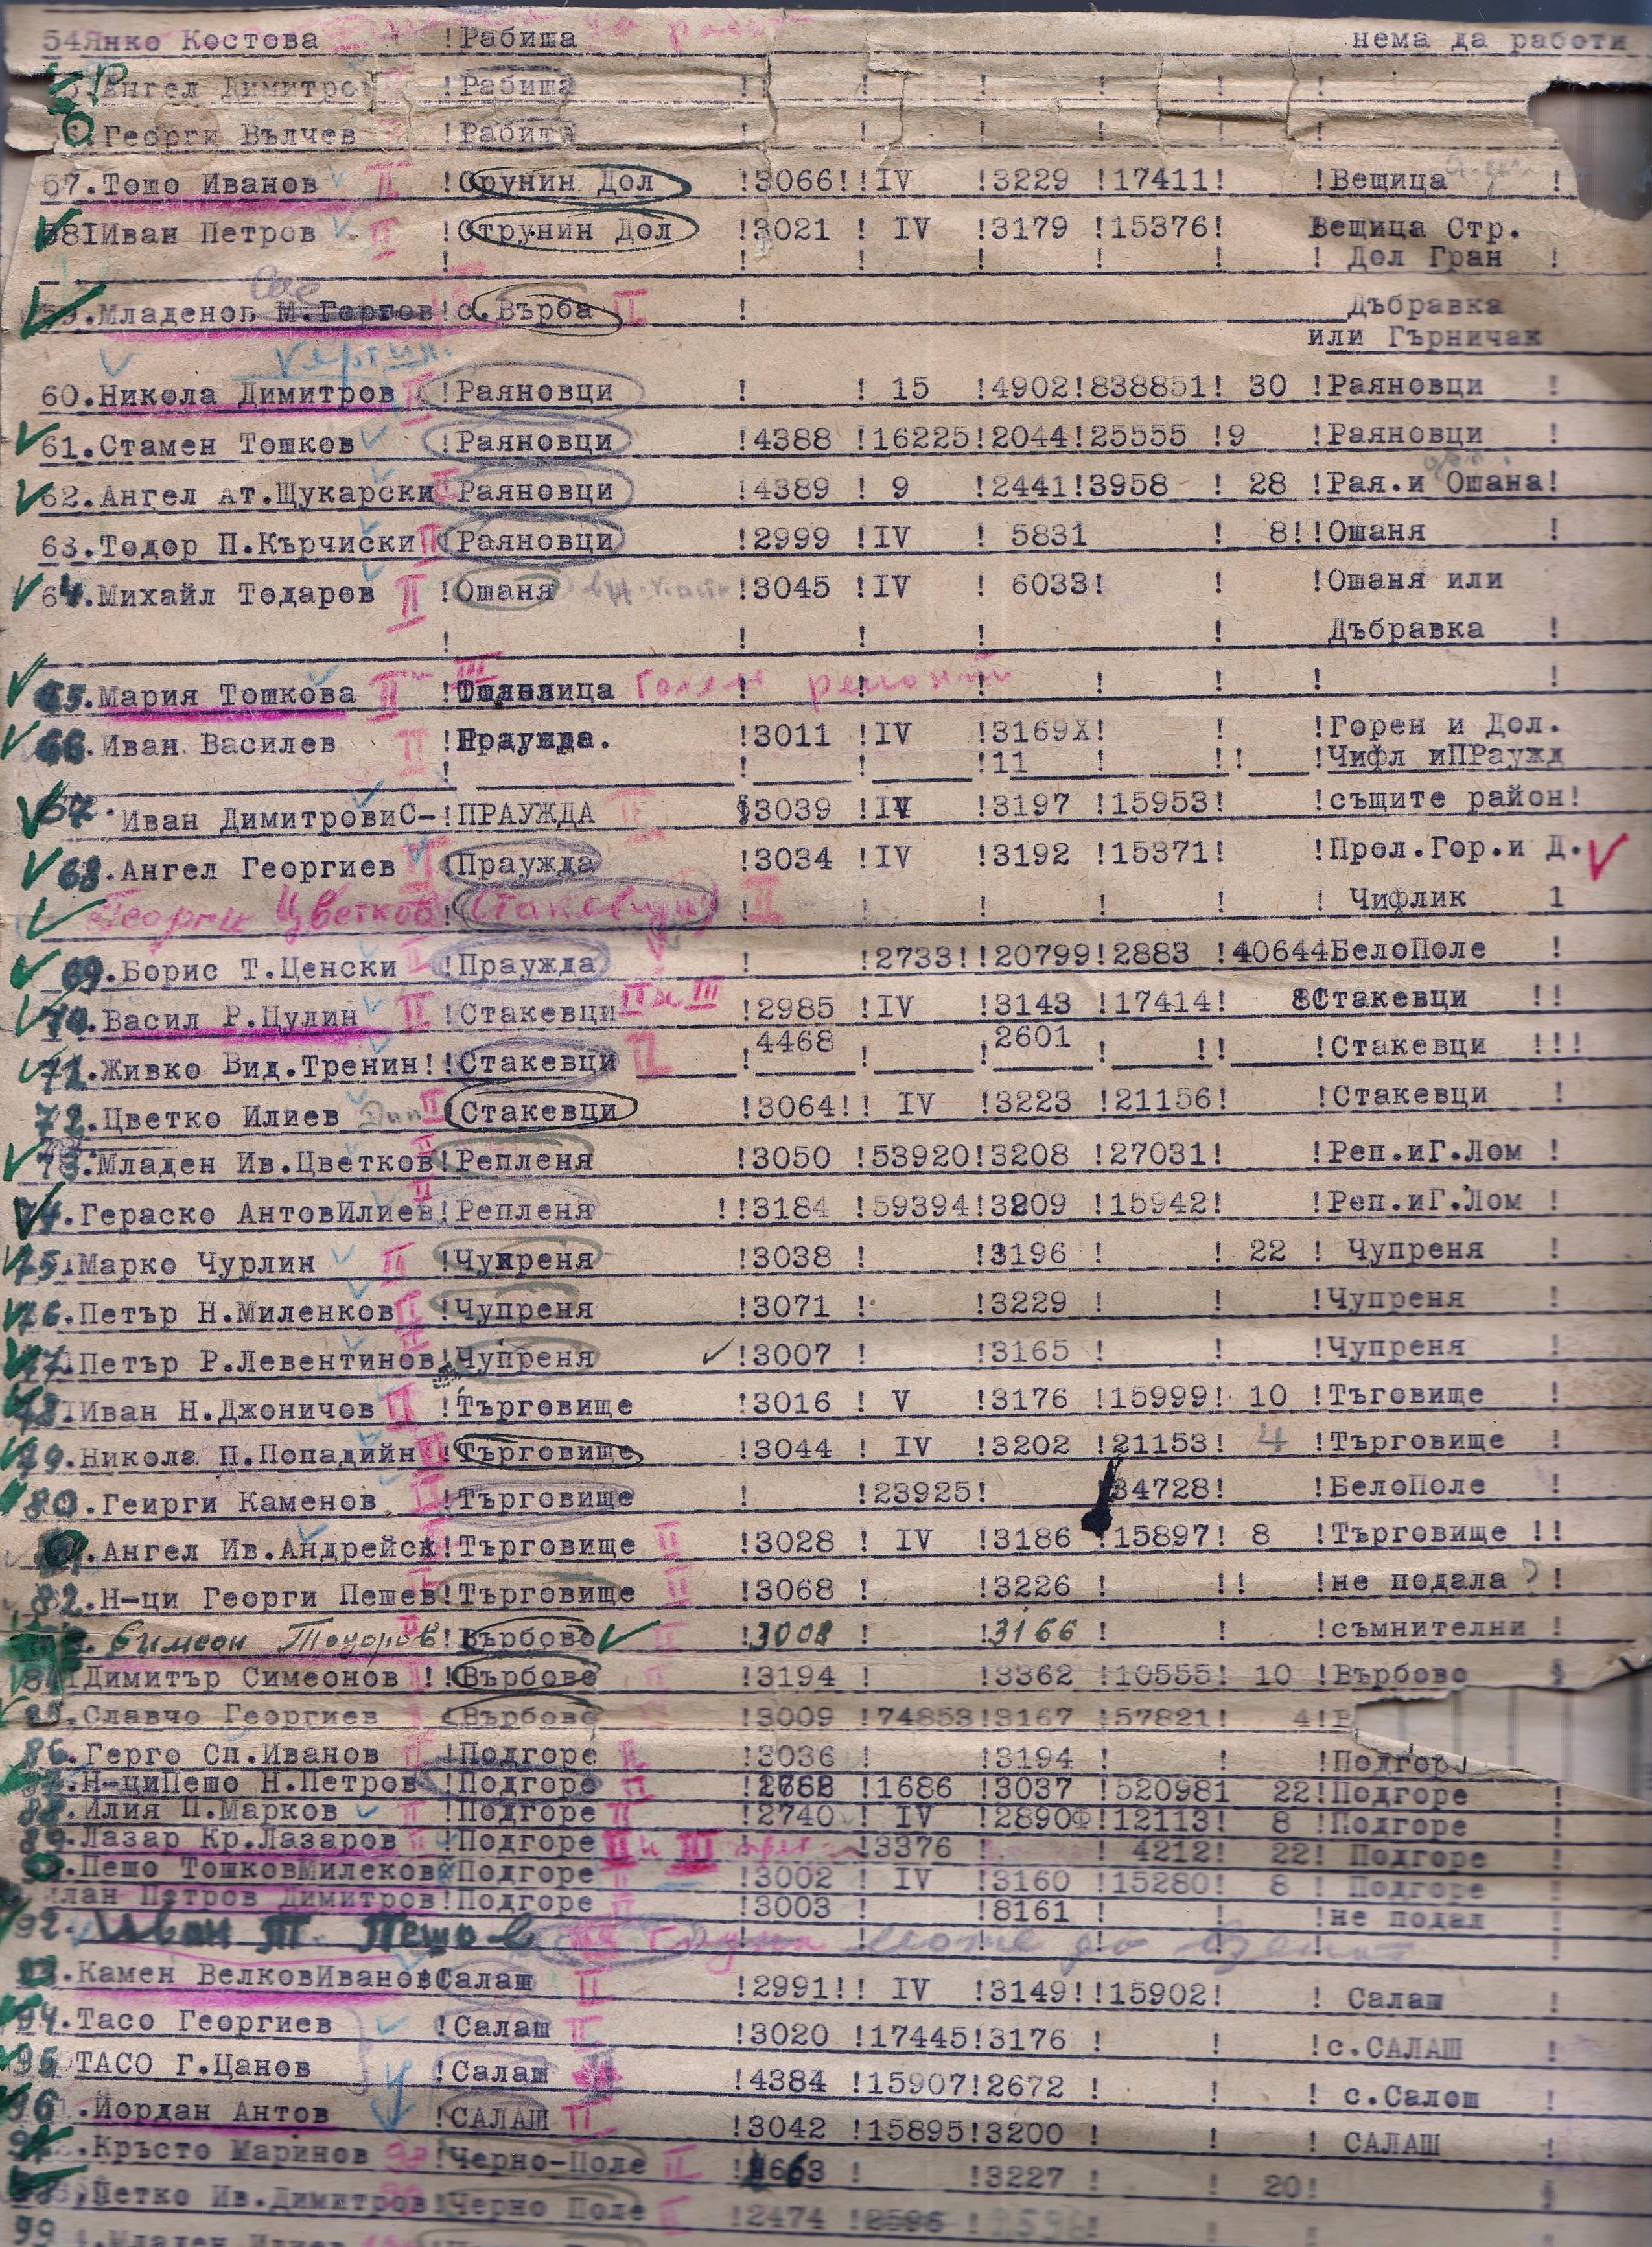 54Янко Костова !Рабиша нема да работи
Ангел Димитров !Рабиша !! ! ! ! ! !
Георги Вълчев !Рабиша ! ! ! ! ! !
57.Тошо Иванов II !Орунин Дол !3066!!IV !3229 !17411! !Вещица !
58IИван Петров II !Струнин Дол !3021 ! IV !3179 !15376! Вещица Стр.
! ! ! ! ! ! ! Дол Гран !
59.Младенов М.Гергов!с.Върба II ! Дъбравка
или Гърничак
60.Никола Димитров II !Раяновци ! ! 15 !4902!838851! 30 !Раяновци !
61.Стамен Тошков !Раяновци !4388 !16225!2044!25555 !9 !Раяновци !
62.Ангел Ат.Щукарски II Раяновци !4389 ! 9 !2441!3958 ! 28 !Рая.и Ошана!
63.Тодор П.Кърчиски II !Раяновци !2999 !IV ! 5831 ! 8!!Ошаня !
64.Михайл Тодаров II !Ошаня !3045 !IV ! 6033! ! !Ошаня или
! ! ! ! ! Дъбравка !
65.Мария Тошкова II III голем ремонт ! ! ! ! ! ! !
66.Иван Василев II !Праужда. !3011 !IV !3169X! ! !Горен и Дол.
! ! ! !11 ! !! !Чифл иПРаужд
67. Иван ДимитровиС-!ПРАУЖДА II !3039 !IV !3197 !15953! !същите район!
68.Ангел Георгиев II !Праужда !3034 !IV !3192 !15371! !Прол.Гор.и Д.
Георги Цветков (Стакевци) II ! ! ! ! ! ! Чифлик 1
69.Борис Т.Ценски II !Праужда ! !2733!!20799!2883 !40644БелоПоле !
70.Васил Р.Цулин II !Стакевци II и III !2985 !IV !3143 !17414! 8Стакевци !!
71.Живко Вид.Тренин!!Стакевци II ! 4468 ! ! 2601 ! !! !Стакевци !!!
72.Цветко Илиев II !Стакевци !3064!! IV !3223 !21156! !Стакевци !
73.Младен Ив.Цветков!Репленя !3050 !53920!3208 !27031! !Реп.иГ.Лом !
74.Гераско АнтовИлиев!Репленя !!3184 !59394!3209 !15942! !Реп.иГ.Лом !
75IМарко Чурлин II !Чупреня !3038 ! !3196 ! ! 22 ! Чупреня !
76.Петър Н.Миленков II !Чупреня !3071 ! !3229 ! ! !Чупреня !
77.Петър Р.Левентинов!Чупреня !3007 ! !3165 ! ! !Чупреня !
78IИван Н.Джоничов II !Търговище !3016 ! V !3176 !15999! 10 !Тъговище !
79.Никола П.Попадийн II !Търговище !3044 ! IV !3202 !21153! 4 !Търговище !
80.Геирги Каменов II !Търговище ! !23925! 34728! !БелоПоле !
81.Ангел Ив.Андрейск!Търговище II !3028 ! IV !3186 !15897! 8 !Търговище !!
82.Н-ци Георги Пешев!Търговище II !3068 ! !3226 ! !! !не подала ? !
Симеон Тодоров !Върбово II !3008 ! !3166 ! ! !съмнителни !
84IДимитър Симеонов !!Върбово !3194 ! !3362 !10555! 10 !Върбово
85.Славчо Георгиев !Върбово !3009 !74853!3167 !57821! 4!В
86.Герго Сп.Иванов II !Подгоре II !3036 ! !3194 ! ! !Подгор
87.Н-циПешо Н.Петров !Подгоре II !2668 !1686 !3037 !520981 22!Подгоре !
88.Илия П.Марков II !Подгоре II !2740 ! IV !2890Ф!12113! 8 !Подгоре !
89.Лазар Кр.Лазаров II !Подгоре II и III ! !3376 ! ! 4212! 22! Подгоре !
90.Пешо ТошковМилеков Подгоре !3002 ! IV !3160 !15280! 8 ! Подгоре !
илан Петров Димитров!Подгоре II !3003 ! !8161 ! ! !не подал !
92. Иван Т. Пешов може да ! ! ! ! ! ! !
93.Камен ВелковИванов Салаш II !2991!! IV !3149!!15902! ! Салаш !
94.Тасо Георгиев !Салаш II !3020 !17445!3176 ! ! !с.САЛАШ !
95 ТАСО Г.Цанов !Салаш !4384 !15907!2672 ! ! ! с.Салош !
96.Йордан Антов !САЛАШ II !3042 !15895!3200 ! ! ! САЛАШ !
.Кръсто Маринов !Черно-Поле II !663 ! !3227 ! ! 20!
98.Цетко Ив.Димитров!Черно Поле II !2474 !2596 ! ! !
99 .Младен Илиев